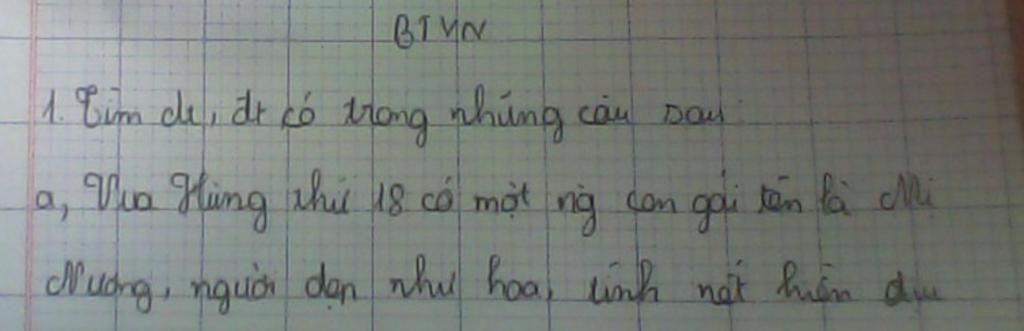 BTVN
1. Tìm dt, đt có trong những câu sau:
a, Vua Hùng thứ 18 có một ng con gái tên là Mị
Nương, người đẹp như hoa, tính nết hiền dịu